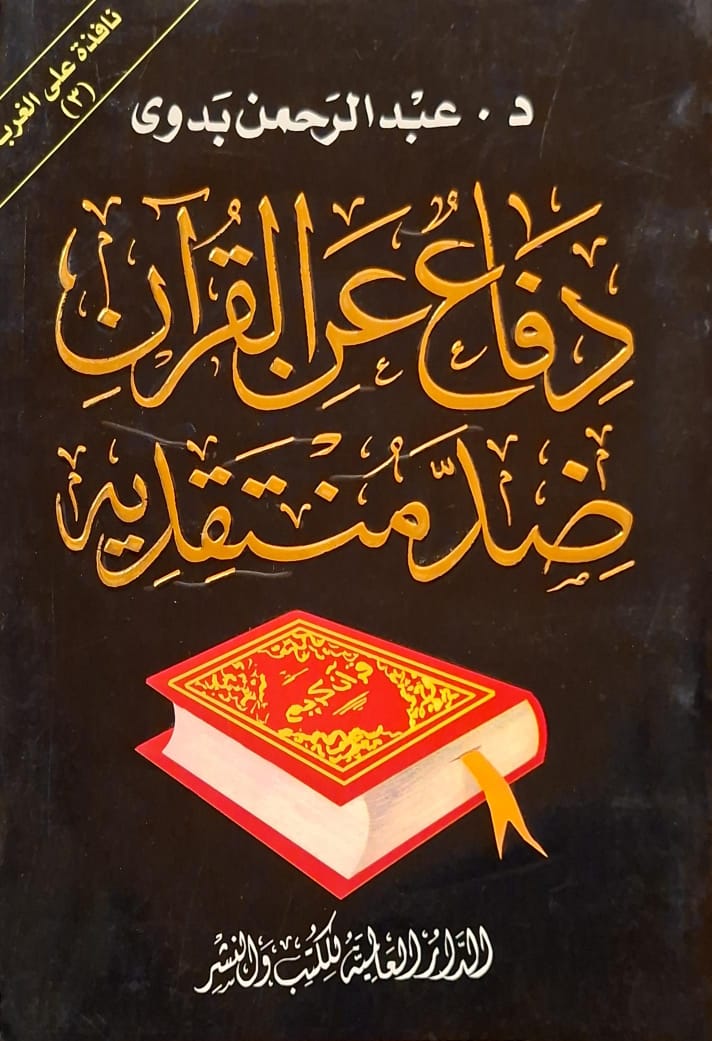 نافذة على الغرب
(٣)
د. عبْد الرَحمن بَدوى
دِفَاعٌ عَنِ القُرآنِ
ضِدَّ مُنْتَقِدِيه
قرآن كريم
الدَّارُ العَالميَّة للكُتبِ وَالنشْرِ